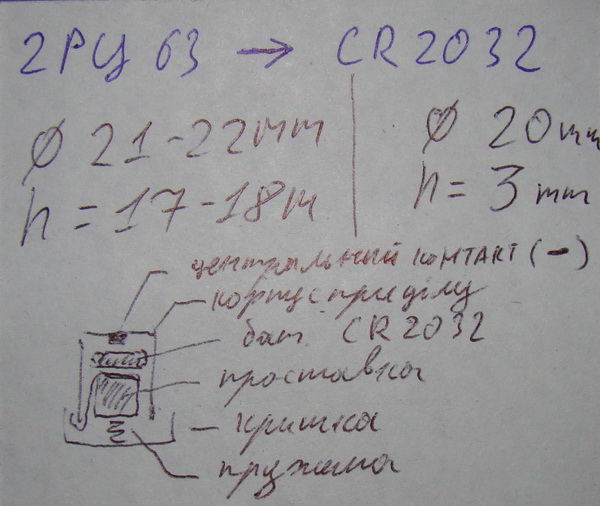 2РЦ 63 → CR2032
Ø 21-22mm
Ø 20mm
h = 17-18m
h = 3mm
центральный контакт (-)
корпус прицілу
бат. CR2032
проставка
кришка
пружина